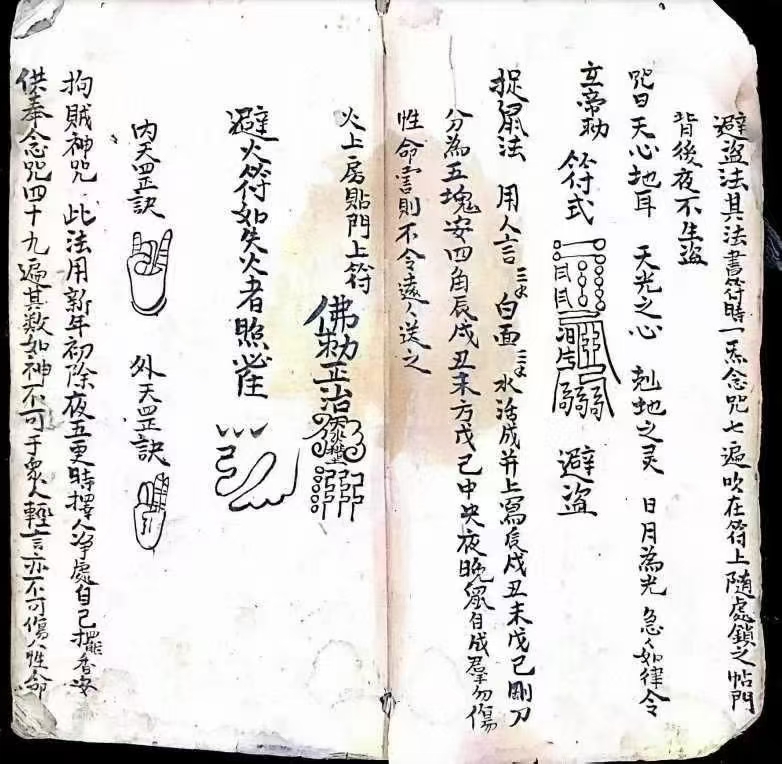 避盗法其法書符時一炁念咒七遍吹在符上隨處鎖之帖門
背後夜不生盗
咒曰天心地耳 天光之心 刦地之灵 日月為光 急急如律令
玄帝勅 符式 避盗
捉鼠法 用人言三文 白面三文 水活成并上寫辰戌丑未戊己剛刀
分為五塊安四角辰戌丑未方戊己中央夜晚鼠自成羣勿傷
性命害則不令遠人送之
火上房貼門上符
佛勅正治
避火符如失火者照
內天罡訣 外天罡訣
拘賊神咒 此法用新年初除夜五更時擇人净處自己擺香安
供奉念咒四十九遍其数如神不可于衆人輕言亦不可傷人性命